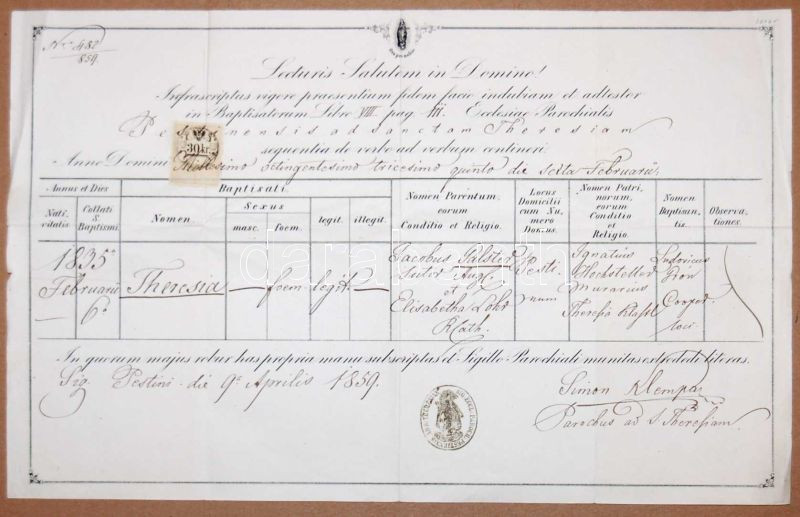 Nro 482
859.
Lecturis Salutem in Domino!
Infrascriptus vigore praesentium fidem facio indubiam et adtestor
in Baptisatorum Libro VIII. pag. Ecclesiae Parochialis
Pestiensis ad Sanctam Theresiam
sequentia de verbo ad verbum contineri:
30 kr.
Anno Domini Millesimo octingentesimo tricesimo quinto die sexta Februarii,
Annus et Dies
Nativitatis
Collati S. Baptismi
Baptisati
Nomen.
Sexus
masc.
foem.
legit.
illegit.
Nomen Parentum, eorum Conditio et Religio.
Locus Domicilii cum Numero Domus.
Nomen Patrinorum, eorum Conditio et Religio.
Nomen Baptisantis.
Observationes.
1835
Februarii
6a
Theresia
foem
legit
Jacobus Galster
Sutor Aug. C.
et
Elisabetha Lohr
R Cath.
Pesti
num
Ignatius
Hochstetter
murarius
Theresia
Ludovicus
Cooperator
loci
In quorum majus robur has propria manu subscriptas et Sigillo Parochiali munitas extradedi literas.
Sig. Pestini die 9a Aprilis 1859.
Simon Klempa
Parochus ad S. Theresiam